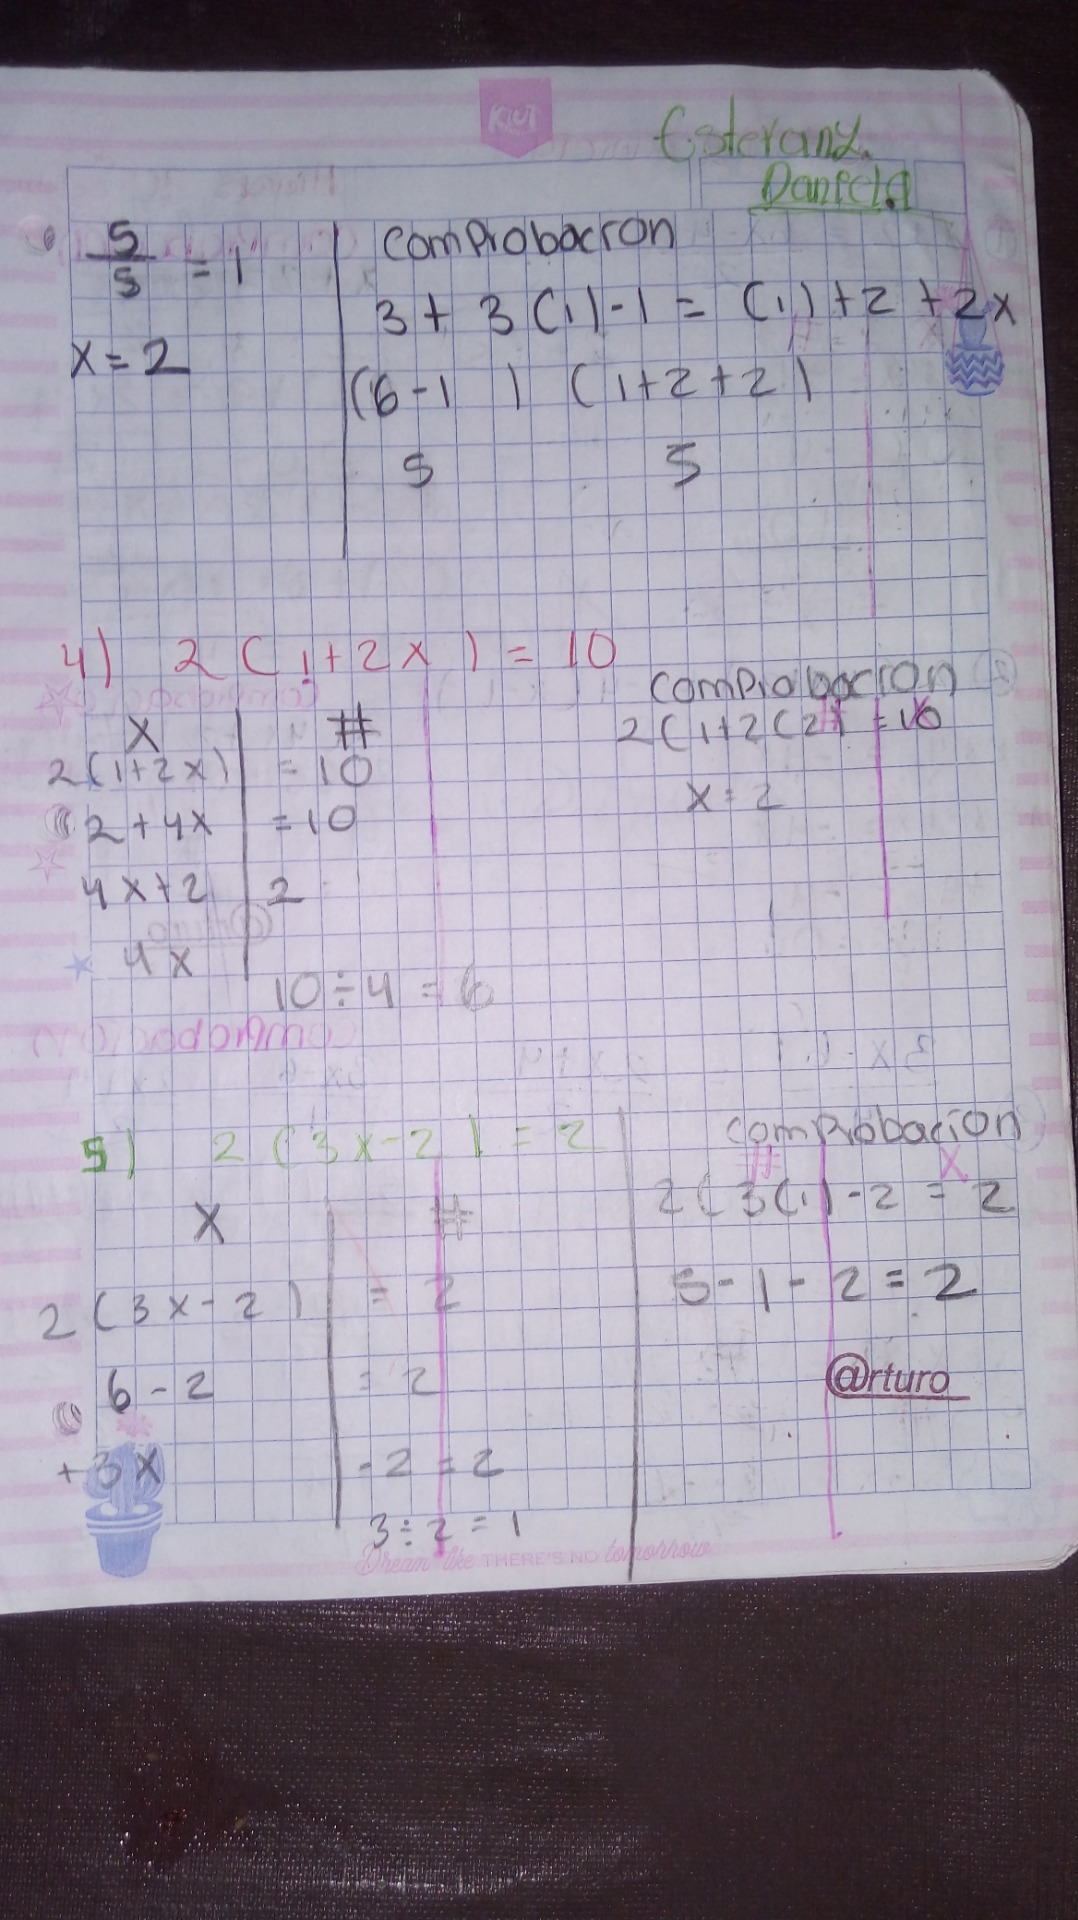 KIUT
Esterany.
Daniela
5/5 = 1
x = 2
comprobacion
3 + 3 (1) - 1 = (1) + 2 + 2x
(6 - 1 ) ( 1 + 2 + 2 )
5 5
4) 2 ( 1 + 2 x ) = 10
x #
2 (1 + 2 x) = 10
2 + 4x = 10
4 x + 2 2
4 x
10 ÷ 4 = 6
comprobacion
2 ( 1 + 2 ( 2 ) = 10
x = 2
5) 2 ( 3 x - 2 ) = 2
x #
2 ( 3 x - 2 ) = 2
6 - 2 = 2
+ 3 x - 2 = 2
3 ÷ 2 = 1
comprobacion
2 ( 3 (1) - 2 = 2
5 - 1 - 2 = 2
@rturo
Dream like THERE'S NO tomorrow